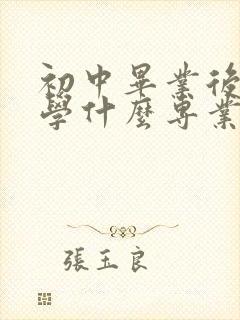 初中畢業後
學什麼專業
張玉良